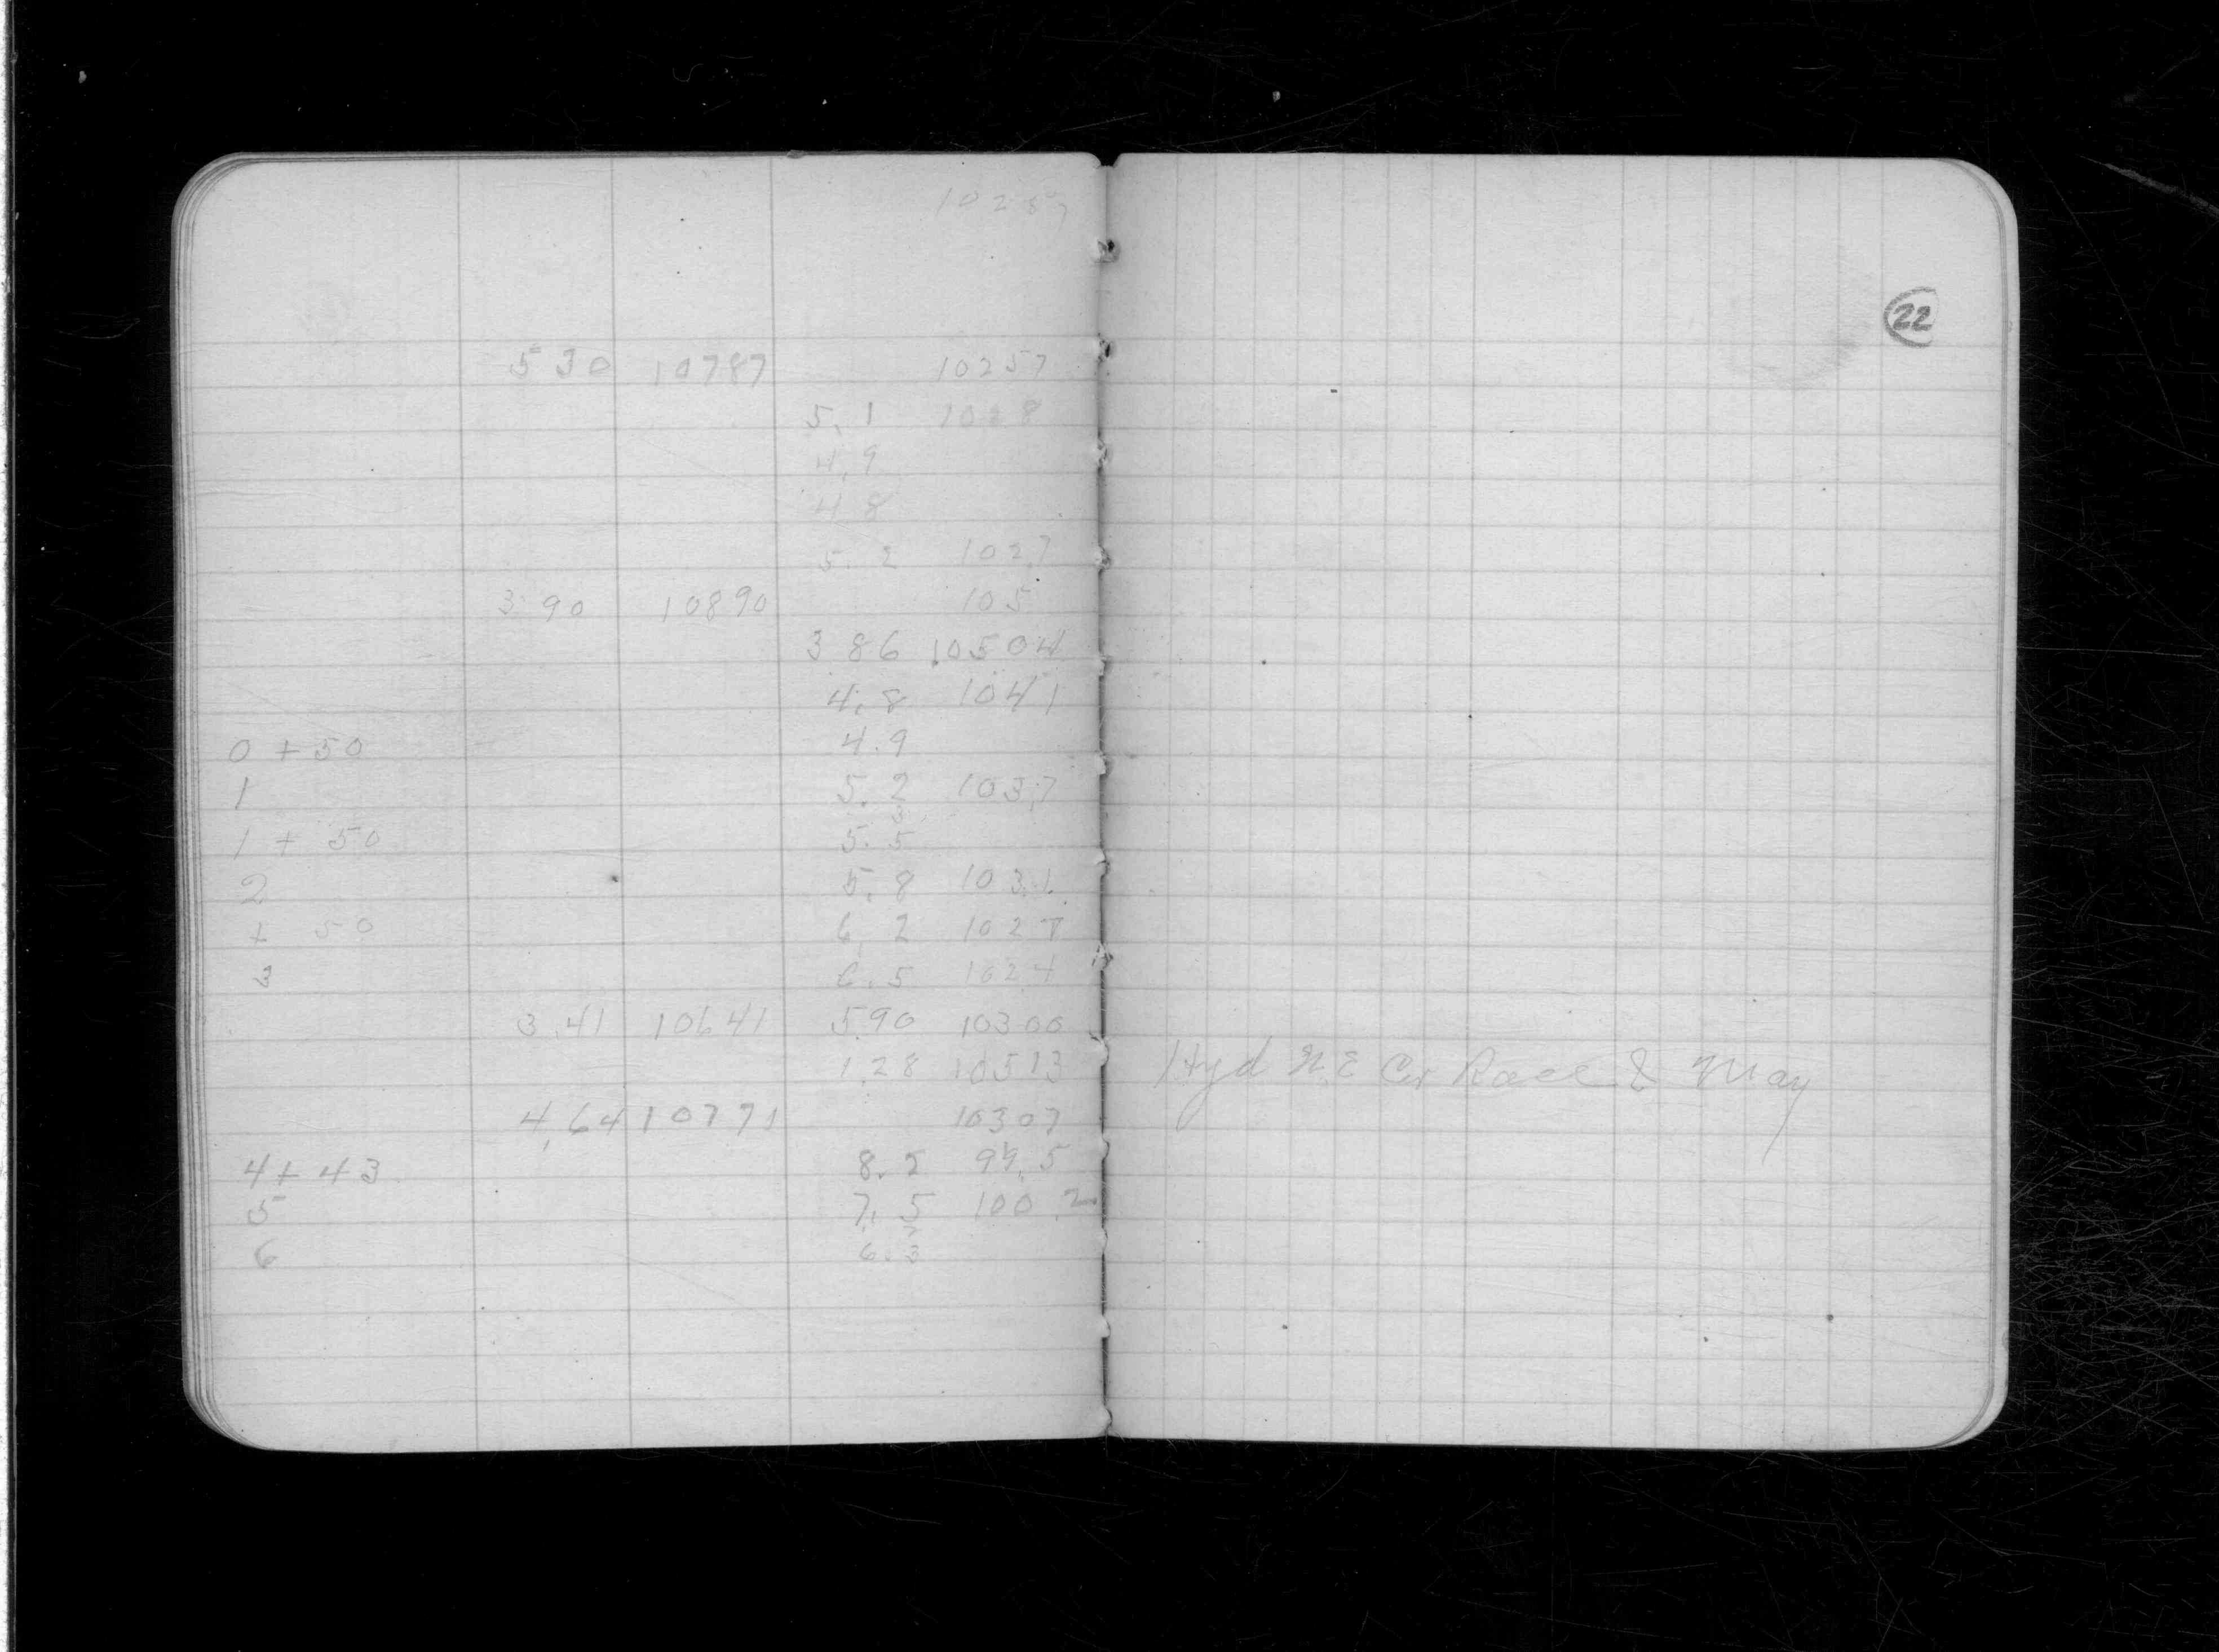 10257
530 10787 10257
5.1 1028
4.9
4.8
5.2 102.7
3 90 10890 105
3 86 10504
4.8 1041
0 + 50 4.9
1 5.2 103.7
1 + 50 5.5
2 5.8 103.1
+ 50 6.2 102 7
3 6.5 102.4
3.41 10641 590 10300
1.28 10513
4.64 10771 10307
4 + 43 8.2 99.5
5 7.5 100.2
6 6.3
22
Hyd N.E Cor Race & May